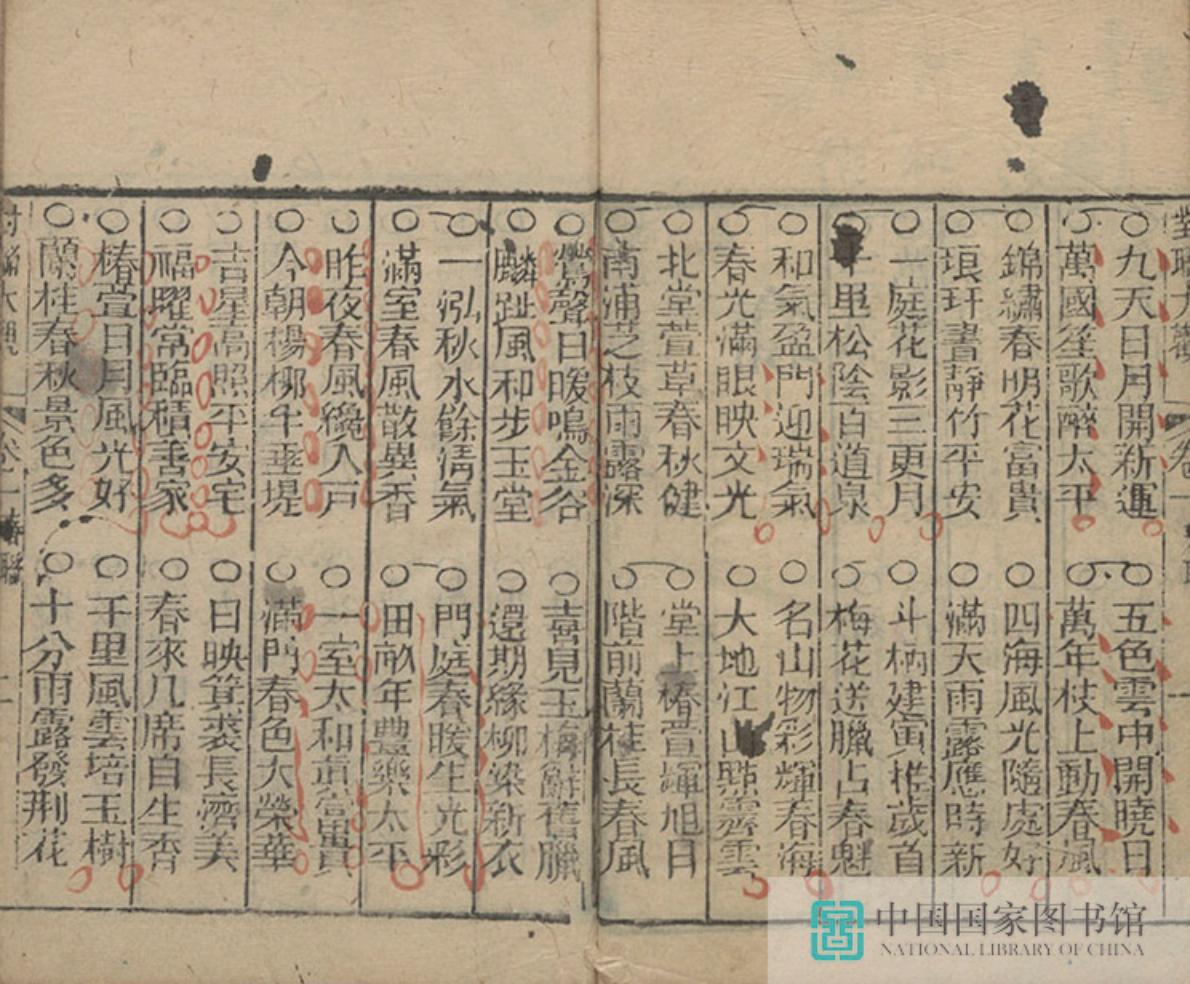 對聯大觀 卷一 一
○九天日月開新運 ○五色雲中開曉日
○萬國笙歌醉太平 ○萬年枝上動春風
○錦繡春明花富貴 ○四海風光隨處好
○琅玕晝靜竹平安 ○滿天雨露應時新
○一庭花影三更月 ○斗柄建寅推歲首
十里松陰百道泉 ○梅花送臘占春魁
○和氣盈門迎瑞氣 ○名山物彩輝春海
○春光滿眼映文光 ○大地江山點霽雲
○北堂萱草春秋健 ○堂上椿萱輝旭日
○南浦芝枝雨露深 ○階前蘭桂長春風
○鶯聲日暖鳴金谷 ○喜見玉梅辭舊臘
○麟趾風和步玉堂 ○還期緣柳染新衣
○一泓秋水餘清氣 ○門庭春暖生光彩
○滿室春風散異香 ○田畝年豐樂太平
○昨夜春風纔入戸 ○一室太和真富貴
○今朝楊柳半垂堤 ○滿門春色大榮華
○吉星高照平安宅 ○日映箕裘長濟美
○福曜常臨積善家 ○春來几席自生香
○椿萱日月風光好 ○千里風雲培玉樹
○蘭桂春秋景色多 ○十分雨露發荆花
對聯大觀 卷一 春聯 二
中国国家图书馆
NATIONAL LIBRARY OF CHINA